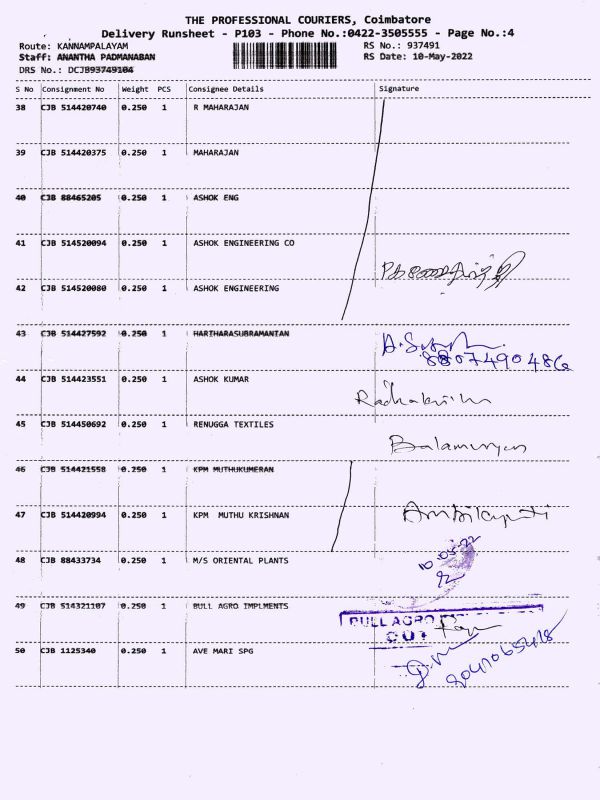 THE PROFESSIONAL COURIERS, Coimbatore
Delivery Runsheet - P103 - Phone No.:0422-3505555 - Page No.:4
Route: KANNAMPALAYAM RS No.: 937491
Staff: ANANTHA PADMANABAN RS Date: 10-May-2022
DRS No.: DCJB93749104
S No Consignment No Weight PCS Consignee Details Signature
38 CJB 514420740 0.250 1 R MAHARAJAN
39 CJB 514420375 0.250 1 MAHARAJAN
40 CJB 88465205 0.250 1 ASHOK ENG
41 CJB 514520094 0.250 1 ASHOK ENGINEERING CO
42 CJB 514520080 0.250 1 ASHOK ENGINEERING
43 CJB 514427592 0.250 1 HARIHARASUBRAMANIAN
8807490486
44 CJB 514423551 0.250 1 ASHOK KUMAR
45 CJB 514450692 0.250 1 RENUGGA TEXTILES
Balamurugan
46 CJB 514421558 0.250 1 KPM MUTHUKUMERAN
47 CJB 514420994 0.250 1 KPM MUTHU KRISHNAN
48 CJB 88433734 0.250 1 M/S ORIENTAL PLANTS
10-05-22
49 CJB 514321107 0.250 1 BULL AGRO IMPLMENTS
BULL AGRO
50 CJB 1125340 0.250 1 AVE MARI SPG